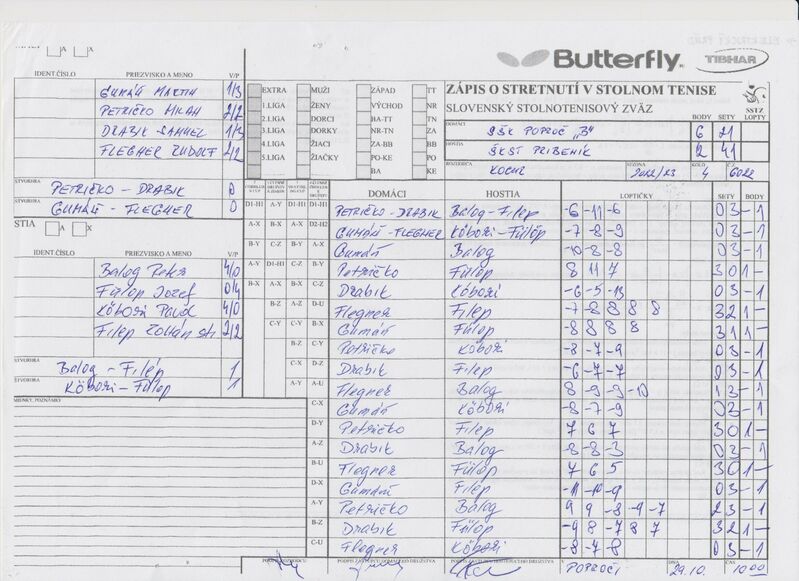 Butterfly
TIBHAR
IDENT.ČÍSLO PRIEZVISKO A MENO V/P
GUMÁŇ MARTIN 1/3
PETRIČKO MILAN 2/2
DRABIK SAMUEL 1/3
FLEGNER RUDOLF 2/2
ŠTVORHRA
PETRIČKO - DRABIK 0
ŠTVORHRA
GUMÁŇ - FLEGNER 0
STIA A X
IDENT.ČÍSLO PRIEZVISKO A MENO V/P
Balog Peter 4/0
Fülöp Jozef 0/4
Köböri Pavol 4/0
Filep Zoltán st. 2/2
ŠTVORHRA
Balog - Filép 1
ŠTVORHRA
Köböri - Fülöp 1
EXTRA MUŽI ZÁPAD TT
1.LIGA ŽENY VÝCHOD NR
2.LIGA DORCI BA-TT TN
3.LIGA DORKY NR-TN ZA
4.LIGA ŽIACI ZA-BB BB
5.LIGA ŽIAČKY PO-KE PO
BA KE
ZÁPIS O STRETNUTÍ V STOLNOM TENISE
SLOVENSKÝ STOLNOTENISOVÝ ZVÄZ
SSTZ
BODY SETY LOPTY
DOMÁCI ŠŠK POPROČ "B" 6 21
HOSTIA ŠKST PRIBENÍK 12 41
ROZHODCA KOCÚR SEZÓNA 2022/23 KOLO 4 Č.Z. 6022
DOMÁCI HOSTIA LOPTIČKY SETY BODY
D1-H1 A-Y D1-H1 D1-H1 PETRIČKO - DRABIK Balog - Filép -6 -11 -6 0 3 - 1
A-X B-X A-X D2-H2 GUMÁŇ - FLEGNER Köböri - Fülöp -7 -8 -9 0 3 - 1
B-Y C-Z B-Y A-X Gumáň Balog -10 -8 -8 0 3 - 1
A-Y D1-H1 C-Z B-Y Petričko Fülöp 8 11 7 3 0 1 -
B-X A-X B-X C-Z Drabik Köböri -6 -5 -13 0 3 - 1
B-Z A-Z D-U Flegner Filep -7 -8 8 8 8 3 2 1 -
C-Y C-Y B-X Gumáň Fülöp -8 8 8 8 3 1 1 -
B-Z C-Y Petričko Köböri -8 -7 -9 0 3 - 1
C-X D-Z Drabik Filep -6 -7 -7 0 3 - 1
A-Y A-U Flegner Balog 8 -9 -9 -10 1 3 - 1
C-X Gumáň Köböri -8 -7 -9 0 3 - 1
D-Y Petričko Filep 7 6 7 3 0 1 -
A-Z Drabik Balog -8 -8 -3 0 3 - 1
B-U Flegner Fülöp 7 6 5 3 0 1 -
D-X Gumáň Filep -11 -10 -9 0 3 - 1
A-Y Petričko Balog 9 9 -8 -9 -7 2 3 - 1
B-Z Drabik Fülöp -9 8 -7 8 7 3 2 1 -
C-U Flegner Köböri -8 -7 -8 0 3 - 1
PODPIS ROZHODCU PODPIS ZÁSTUPCU DOMÁCEHO DRUŽSTVA V POPROČI DŇA 29.10. ČAS 10.00